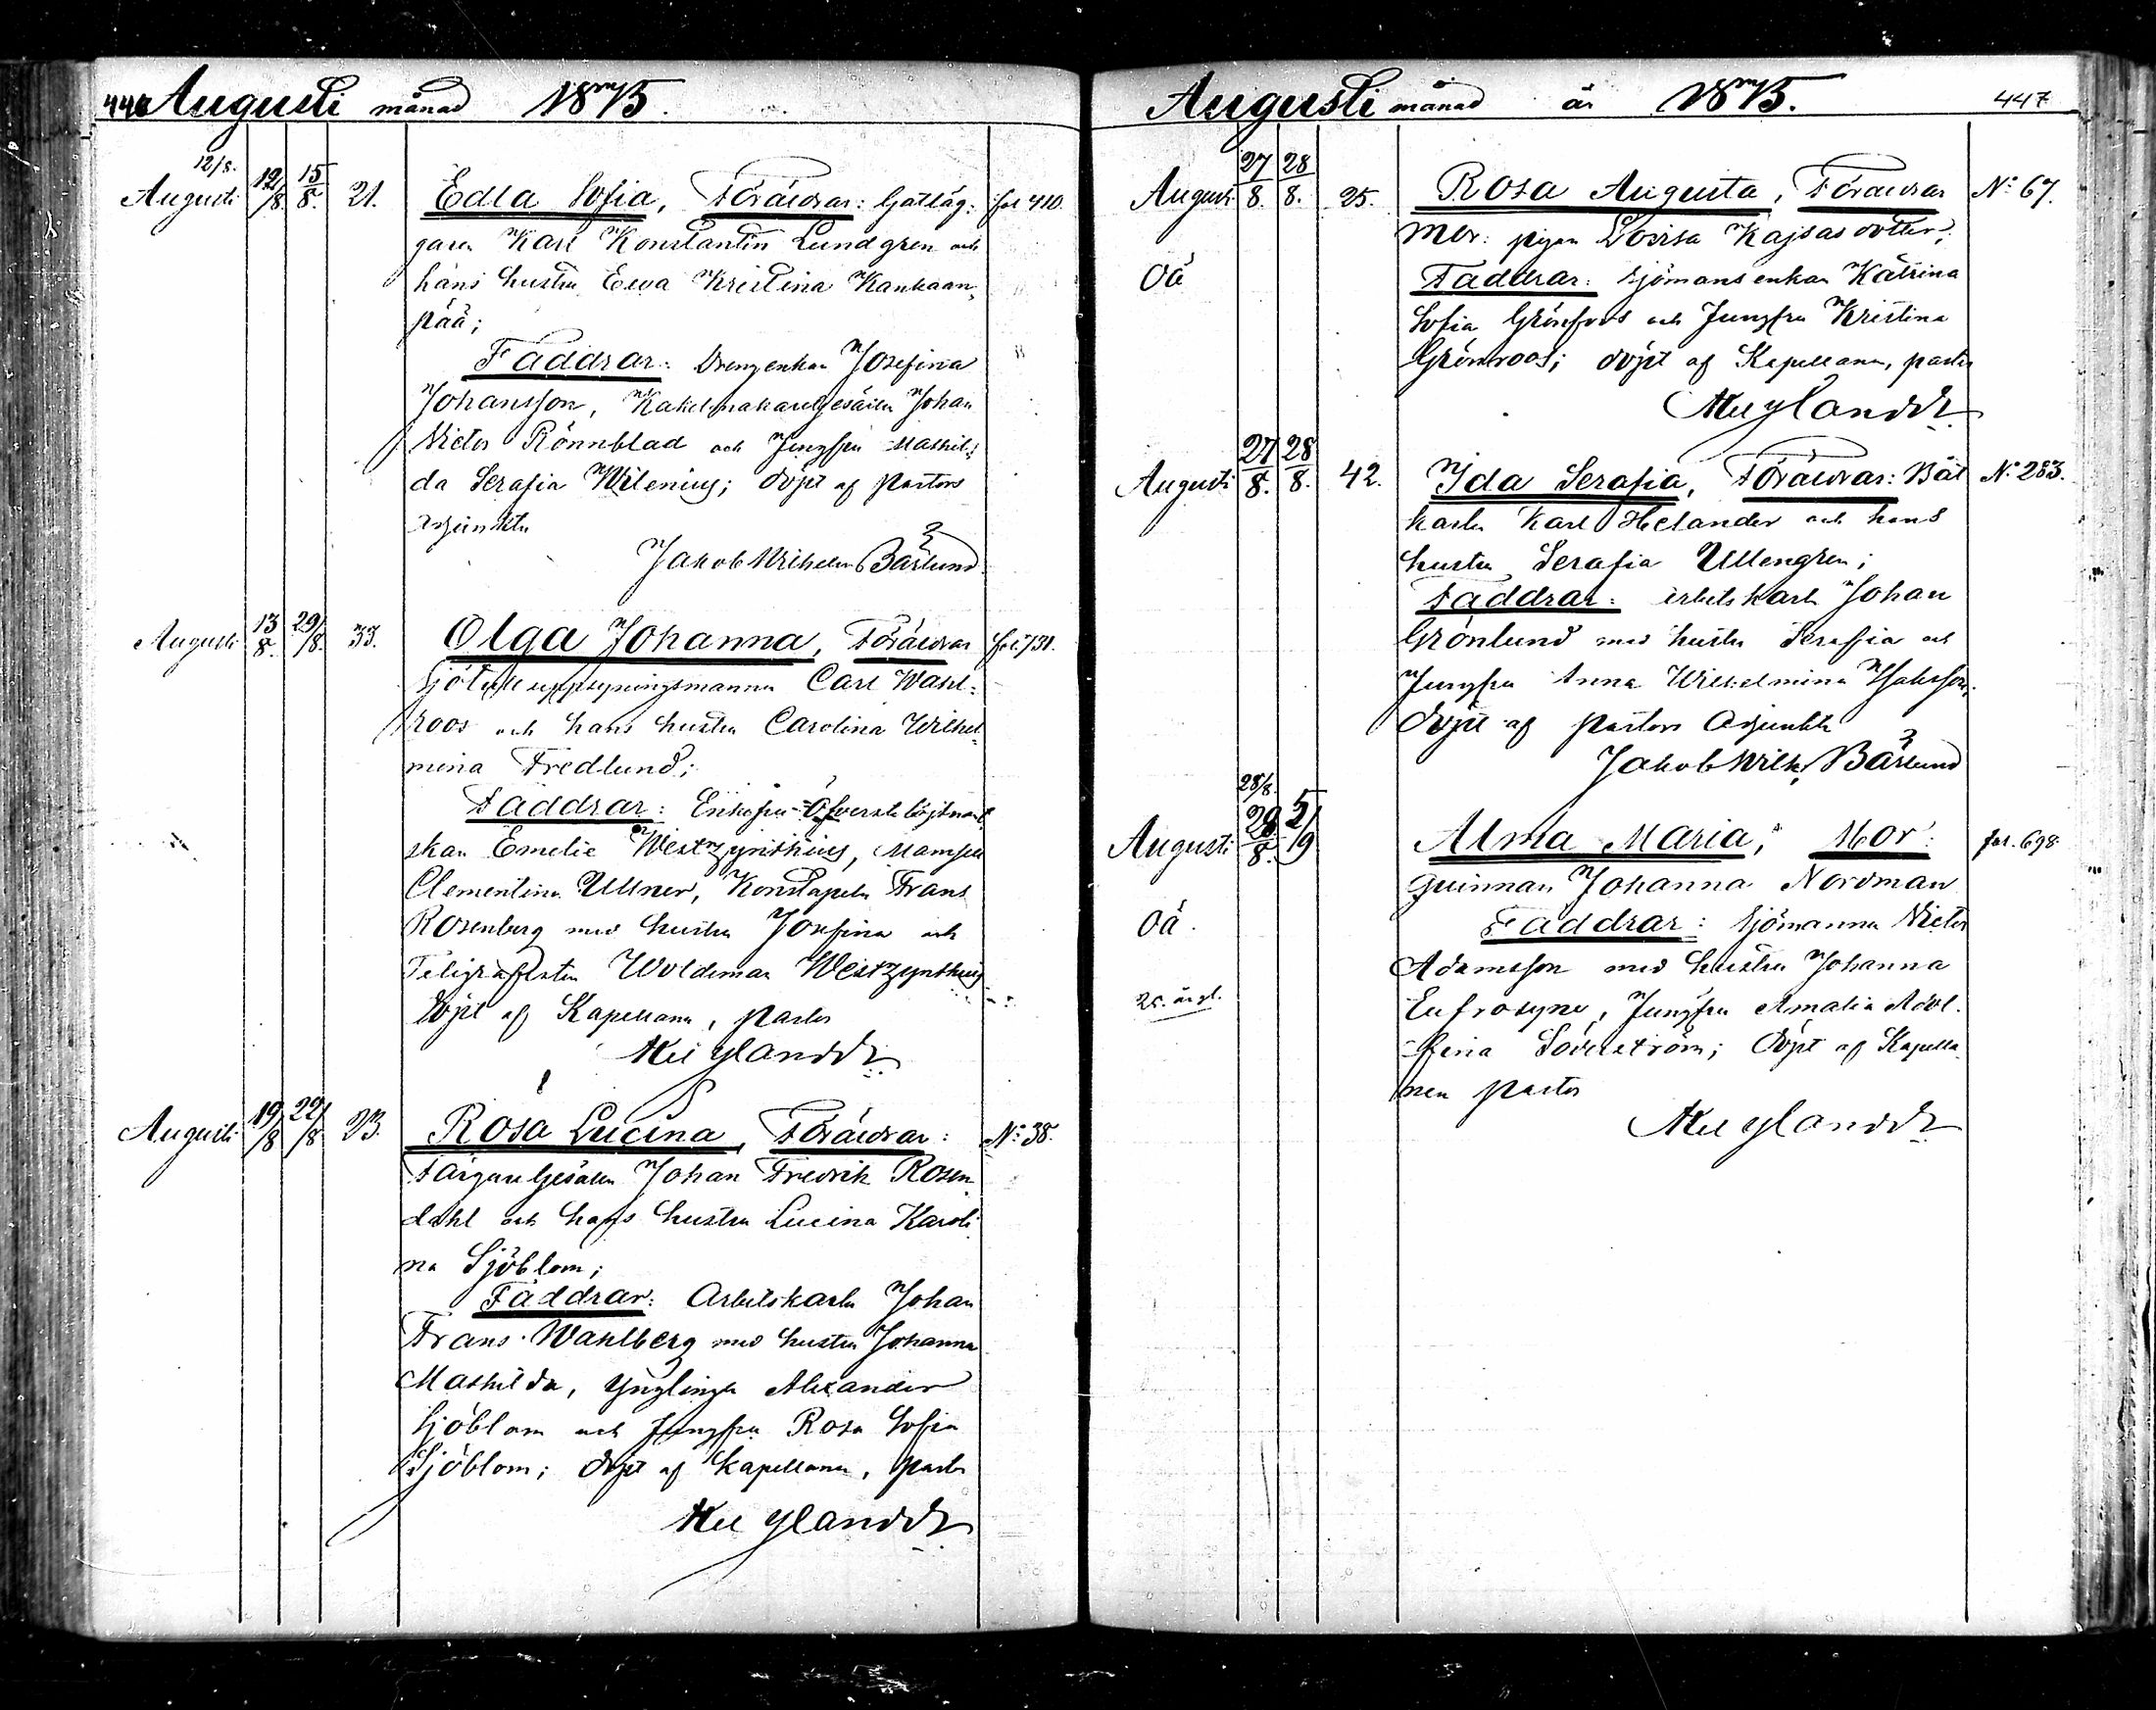 446 Augusti månad 1875.
12/8.
Augusti 12/8. 15/8. 21. Edla Sofia, Föräldrar: Gatläg- fol 410.
garen Karl Konstantin Lundgren och
hans hustru Eva Kristina Kankaan-
pää;
Faddrar: Drengenkan Josefina
Johansson, Kakelmakaregesällen Johan
Victor Rönnblad och Jungfru Mathil-
da Serafia Wilenius; döpt af Pastors
Adjunkten
Jakob Wilhelm Bärlund
Augusti 13/8. 29/8. 33. Olga Johanna, Föräldrar fol. 731.
Sjötulluppsyningsmannen Carl Wahl-
roos och hans hustru Carolina Wilhel-
mina Fredlund;
Faddrar: Enkefru Öfverstelöjtnant-
skan Emelie Westzynthius, Mamsell
Clementina Ullner, Konstapeln Frans
Rosenberg med hustru Josefina och
Telegrafisten Woldemar Westzynthius
döpt af Kapellanen, pastor
Nylandd
Augusti 19/8 22/8 23. Rosa Lucina, Föräldrar: No 38.
Färgaregesällen Johan Fredrik Rosen-
dahl och hans hustru Lucina Karoli-
na Sjöblom;
Faddrar: Arbetskarlen Johan
Frans Wahlberg med hustru Johanna
Mathilda, Ynglingen Alexander
Sjöblom och Jungfru Rosa Sofia
Sjöblom; döpt af Kapellanen, pastor
Nylandd
Augusti månad år 1875. 447
August 27/8. 28/8. 25. Rosa Augusta, Föräldrar No 67.
Mor: pigan Lovisa Kajsasdotter;
Oä Faddrar: Sjömansenkan Katrina
Sofia Grönfors och Jungfru Kristina
Grönroos; döpt af Kapellanen, pastor
Nylandd
Augusti 27/8. 28/8. 42. Ida Serafia, Föräldrar: Båt No 283.
karlen Karl Helander och hans
hustru Serafia Ullengren;
Faddrar: arbetskarlen Johan
Grönlund med hustru Serafia och
Jungfru Anna Wilhelmina
döpt af pastors Adjunkten
Jakob Wilh. Bärlund
28/8.
Augusti 28/8. 5/9 Alma Maria, Mor: fol. 698.
Quinnan Johanna Nordman
Oä. Faddrar: Sjömannen Victor
Adamsson med hustru Johanna
25. år gl. Eufrosyne, Jungfru Amalia Adol-
fina Söderström; döpt af Kapella-
nen pastor
Nylandd